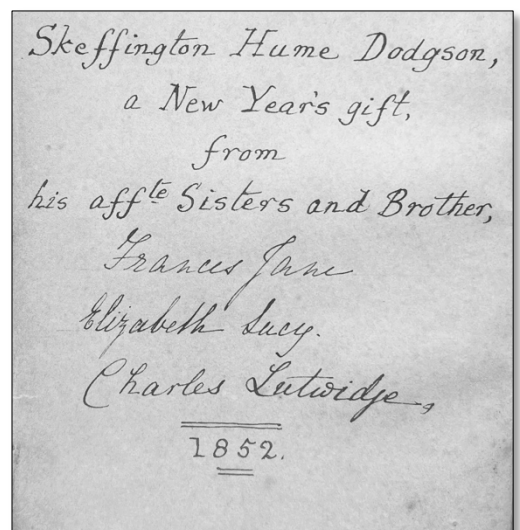 Skeffington Hume Dodgson,
a New Year's gift,
from
his affte Sisters and Brother,
Frances Jane
Elizabeth Lucy.
Charles Lutwidge,
1852.